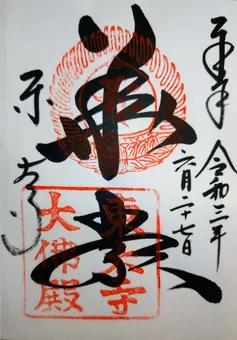 奉拝 令和三年
六月二十七日
華厳
東大寺
大佛殿